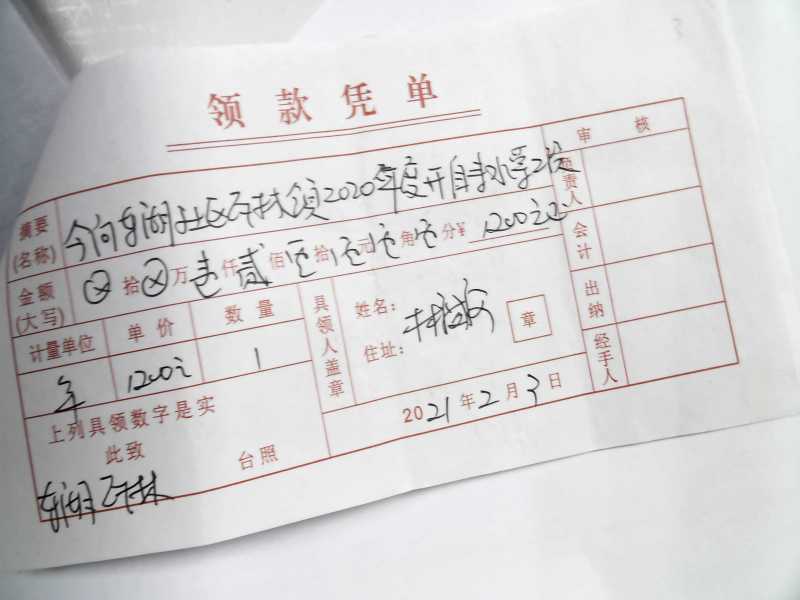 领款凭单
摘要(名称) 今向东湖社区 领2020年度开自来水小学工资
审核
负责人
金额(大写) ⊗拾⊗万壹仟贰佰 拾 元 角 分¥ 1200元正
会计
计量单位 单价 数量
年 1200元 1
具领人盖章
姓名: 林
住址:
章
出纳
经手人
上列具领数字是实
此致
台照
东湖
2021年2月3日